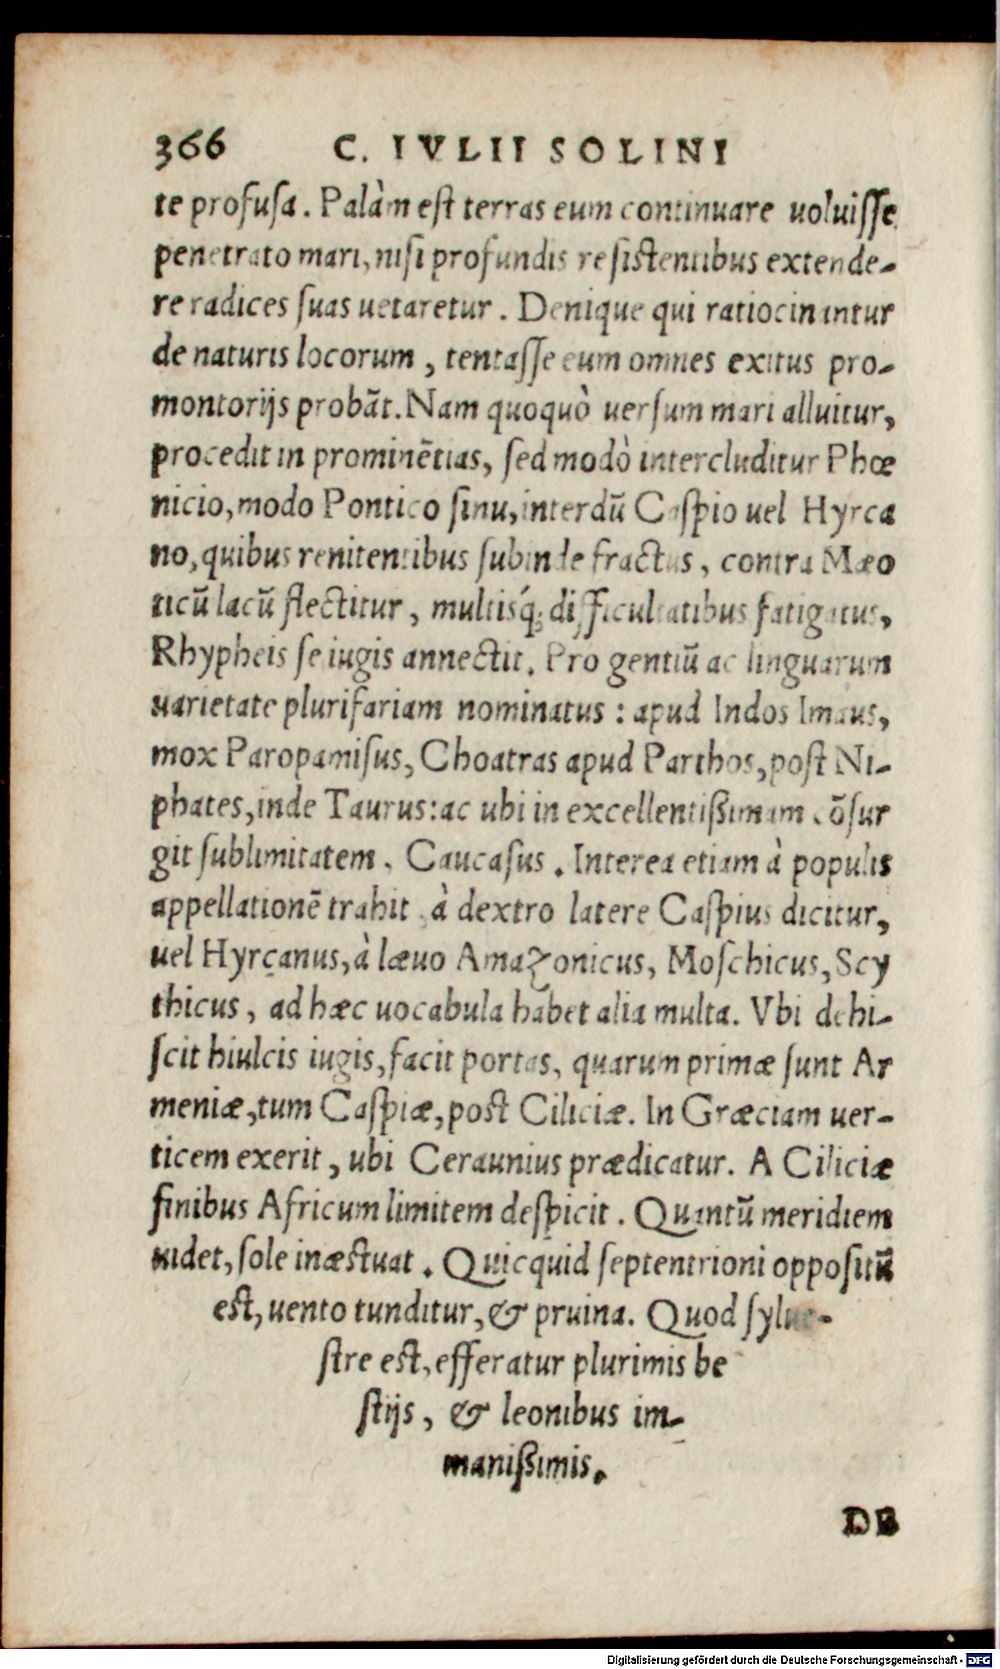 366 C. IVLII SOLINI
te profusa. Palàm est terras eum continuare uoluisse
penetrato mari, nisi profundis resistentibus extende-
re radices suas uetaretur. Denique qui ratiocinantur
de naturis locorum, tentasse eum omnes exitus pro-
montorijs probāt. Nam quoquò uersum mari alluitur,
procedit in prominētias, sed modò intercluditur Phœ
nicio, modo Pontico sinu, interdū Caspio uel Hyrca
no, quibus renitentibus subinde fractus, contra Mæo
ticū lacū flectitur, multisq́; difficultatibus fatigatus,
Rhypheis se iugis annectit. Pro gentiū ac linguarum
uarietate plurifariam nominatus: apud Indos Imaus,
mox Paropamisus, Choatras apud Parthos, post Ni-
phates, inde Taurus: ac ubi in excellentißimam cōsur
git sublimitatem, Caucasus. Interea etiam à populis
appellationē trahit, à dextro latere Caspius dicitur,
uel Hyrcanus, à læuo Amazonicus, Moschicus, Scy
thicus, ad hæc uocabula habet alia multa. Vbi dehi-
scit hiulcis iugis, facit portas, quarum primæ sunt Ar
meniæ, tum Caspiæ, post Ciliciæ. In Græciam uer-
ticem exerit, ubi Ceraunius prædicatur. A Ciliciæ
finibus Africum limitem despicit. Quantū meridiem
uidet, sole inæstuat. Quicquid septentrioni oppositū
est, uento tunditur, & pruina. Quod sylue-
stre est, efferatur plurimis be
stijs, & leonibus im-
manißimis.
DE
Digitalisierung gefördert durch die Deutsche Forschungsgemeinschaft - DFG